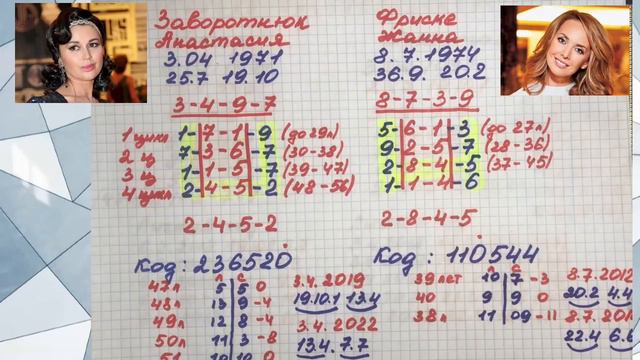 Заворотнюк
Анастасия
3.04 1971
25.7 19.10
3-4-9-7
1 цикл 1-7-1-9 (до 29л)
2 ц 7-3-6-7 (30-38)
3 ц 1-1-5-7 (39-47)
4 цикл 2-4-5-2 (48-56)
2-4-5-2
Код: 236520
л с
47л 5 5 0
48л 13 9 -4
49л 12 8 -4
50л 11 3 -8
51 10 10 0
3.4.2019
19.10.1 13.4
3.4.2022
13.4. 7.7
Фриске
Жанна
8.7.1974
36.9. 20.2
8-7-3-9
5-6-1-3 (до 27л)
9-2-5-7 (28-36)
2-8-4-5 (37-45)
1-1-4-6
2-8-4-5
Код: 110544
л с
39лет 10 7 -3
40 9 9 0
38л 11 09 -11
8.7.2012
20.2 4.4
8.7.201
22.4 6.6